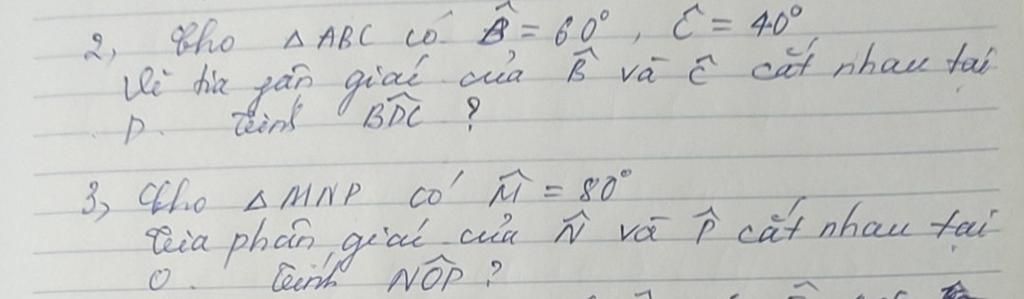 2, Cho △ABC có B̂ = 60°, Ĉ = 40°
Vẽ tia phân giác của B̂ và Ĉ cắt nhau tại
D. Tính BD̂C ?
3, Cho △MNP có M̂ = 80°
Tia phân giác của N̂ và P̂ cắt nhau tại
O. Tính NÔP ?